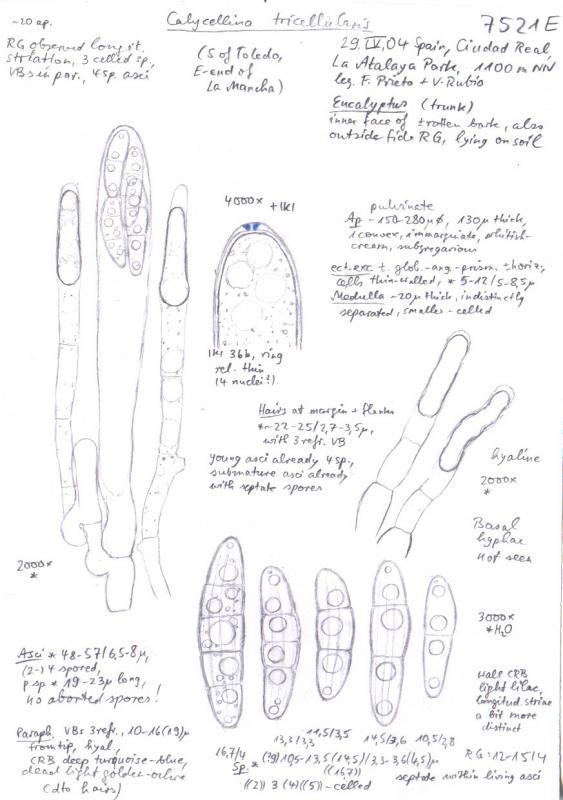 Calycellina tricellularis
7521E
~20 ap.
RG observed longit.
striation, 3 celled sp.,
VBs in par., 4 sp. asci
(S of Toledo,
E-end of
La Mancha)
29. IV. 04 Spain, Ciudad Real,
La Atalaya Park, 1100 m NN
leg. F. Prieto + V. Rubio
Eucalyptus (trunk)
inner face of rotten bark, also
outside fide RG, lying on soil
4000x + IKI
IKI 3bb, ring
rel. thin
(4 nuclei?)
pulvinate
Ap ~150-280µ ø, 130µ thick,
convex, immarginate, whitish-
cream, subgregarious
ect. exc. t. glob.-ang.-prism. ± horiz.,
cells thin-walled, * 5-12/5-8,5µ
Medulla ~20µ thick, indistinctly
separated, smaller-celled
Hairs at margin + flanks
*~22-25/2,7-3,5µ,
with 3 refr. VB
young asci already 4 sp.,
submature asci already
with septate spores
hyaline
2000x
*
Basal
hyphae
not seen
2000x
*
3000x
*H2O
wall CRB
light lilac,
longitud. striae
a bit more
distinct
Asci * 48-57/6,5-8µ,
(2-) 4 spored,
p. sp. * 19-23µ long,
no aborted spores!
Paraph. VBs 3 refr., 10-16(19)µ
from tip, hyal.,
CRB deep turquoise-blue,
dead light golden-ochre
(dto hairs)
16,7/4
13,3/3,3
11,5/3,5
14,5/3,6
10,5/2,8
Sp. * (9) 10,5-13,5(14,5)/3,3-3,6(4,5)µ
((16,7))
((2)) 3 (4)((5))-celled
RG: 12-15/4
septate within living asci